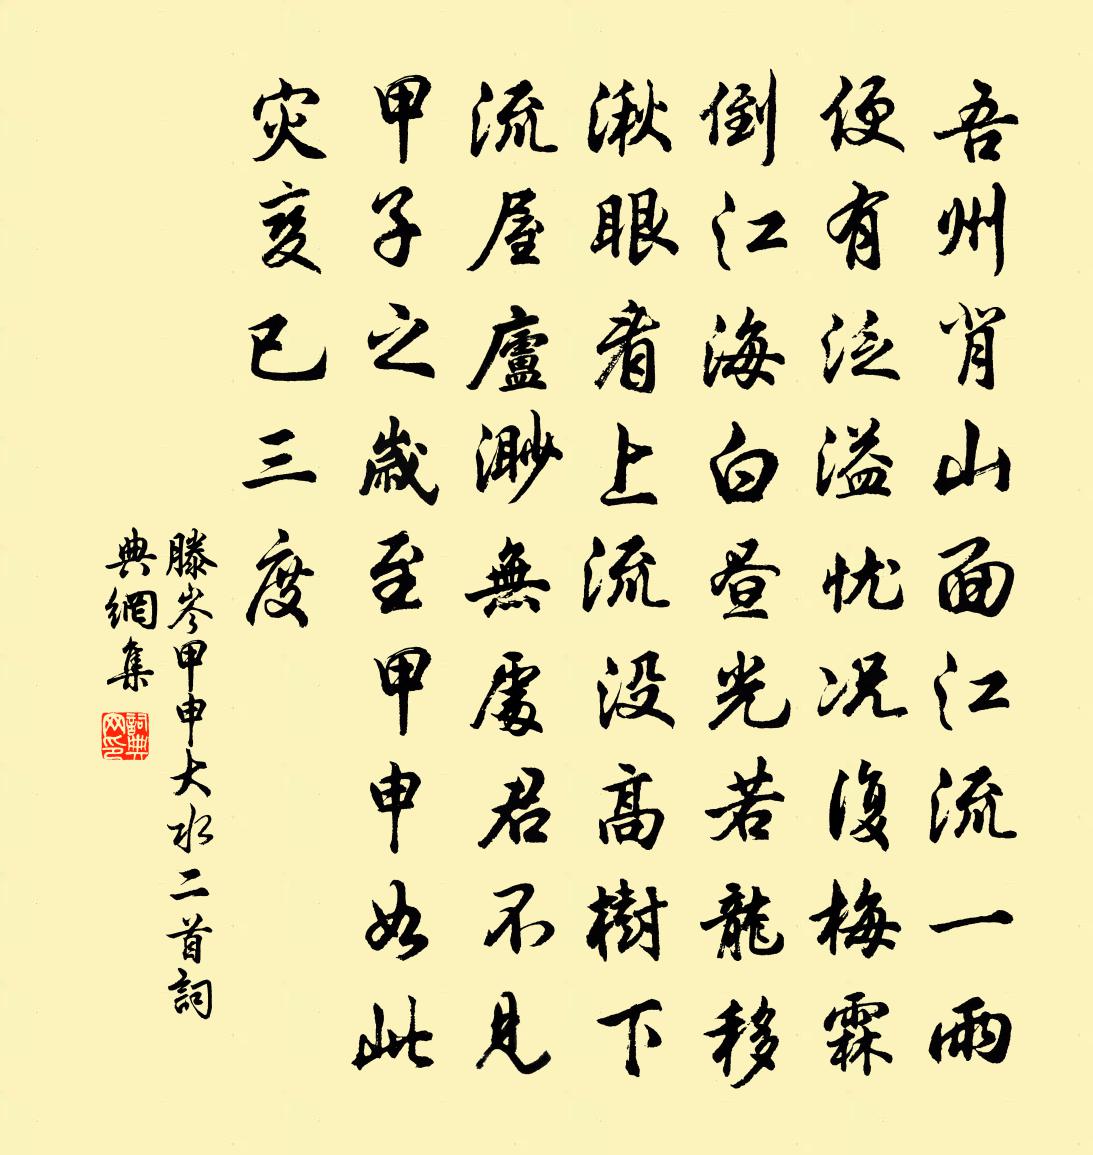 吾州肖山面江流一雨
便有泛溢忧况復梅霖
倒江海白昼光若龍移
湫眼看上流没高樹下
流屋廬渺無處君不見
甲子之歲至甲申如此
灾变已三度
滕岑甲申大水二首詞
典網集
詞典网印